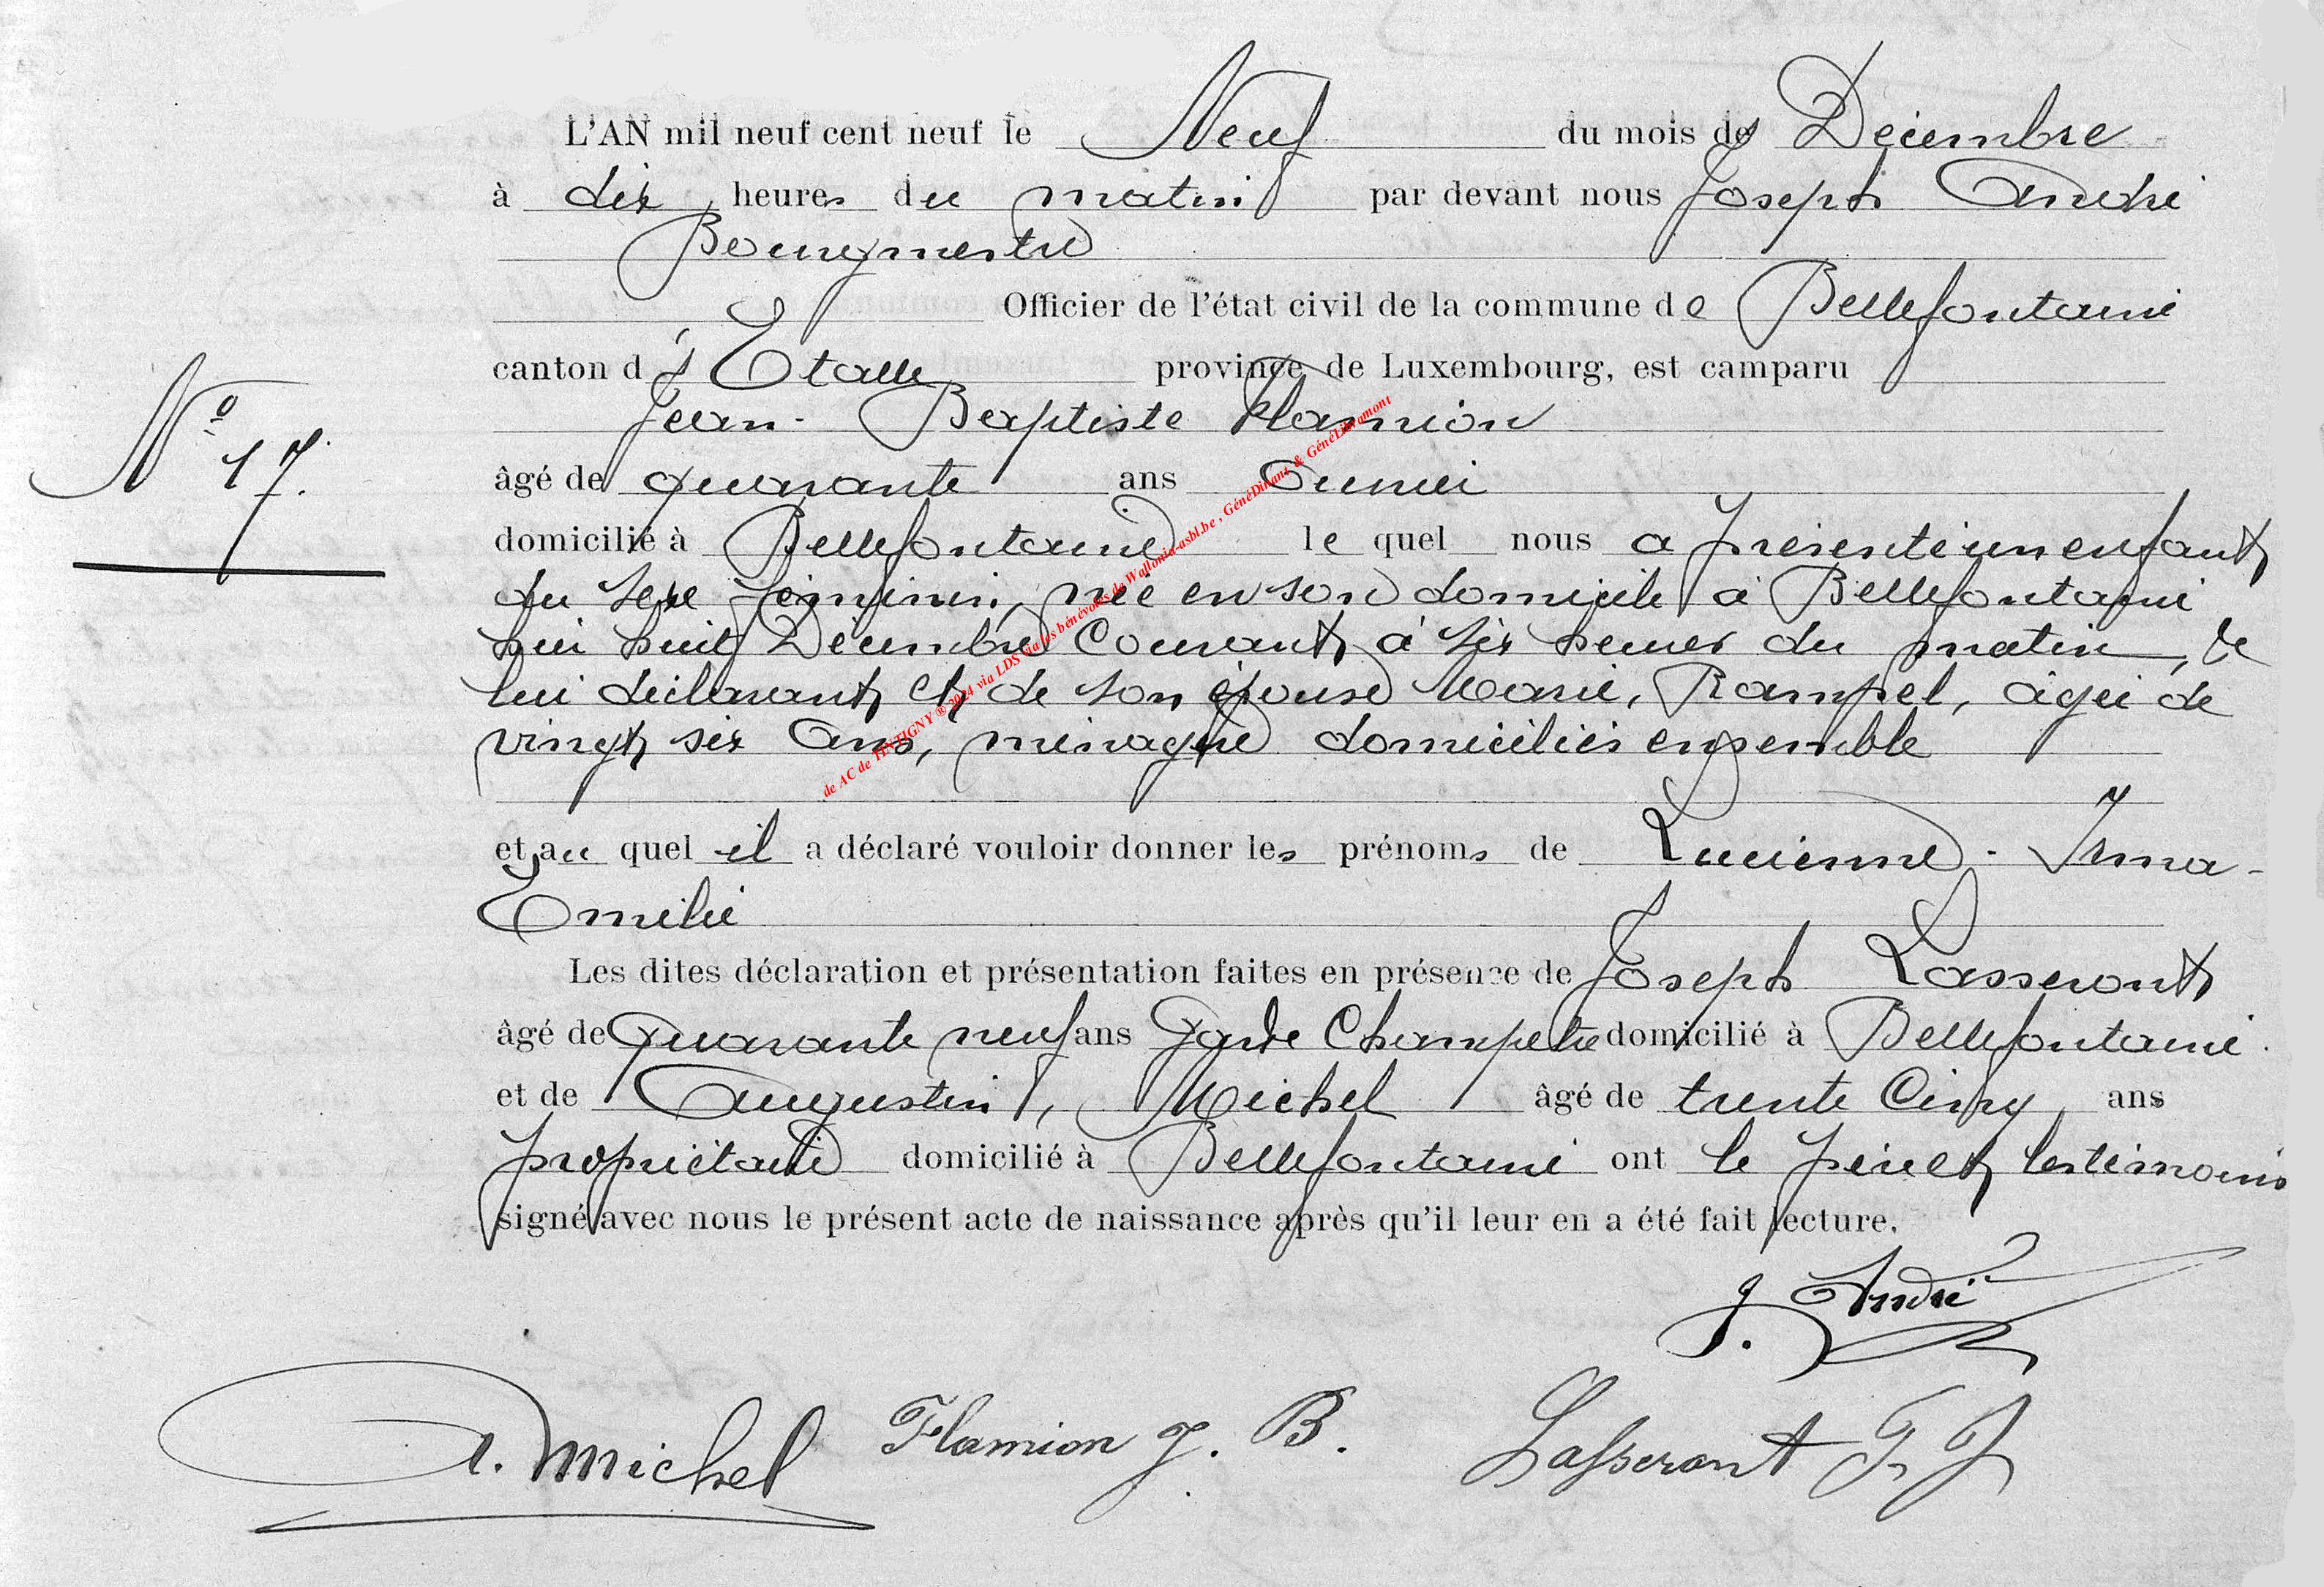 L'AN mil neuf cent neuf le Neuf du mois de Décembre
à dix heures du matin par devant nous Joseph André
Bourgmestre
Officier de l'état civil de la commune de Bellefontaine
canton d'Etalle province de Luxembourg, est camparu
Jean-Baptiste Flamion
N° 17.
âgé de quarante ans
domicilié à Bellefontaine le quel nous a présenté un enfant
du sexe féminin, née en son domicile à Bellefontaine
huit Décembre Courant à six heures du matin, de
lui déclarant et de son épouse Marie, Rampel, âgée de
vingt six Ans, ménagère domiciliés ensemble
et au quel il a déclaré vouloir donner les prénoms de Lucienne-Irma-
Emilie
Les dites déclaration et présentation faites en présence de Joseph Lasseront
âgé de quarante neuf ans Garde Champetre domicilié à Bellefontaine.
et de Augustin, Michel âgé de trente Cinq ans
propriétaire domicilié à Bellefontaine ont le père et les témoins
signé avec nous le présent acte de naissance après qu'il leur en a été fait lecture.
J. André
A. Michel Flamion J. B. Lasseront F. J
de AC de TINTIGNY ® 2024 via LDS via les bénévoles de Wallonia-asbl.be, GénéDinant & GénéLibramont